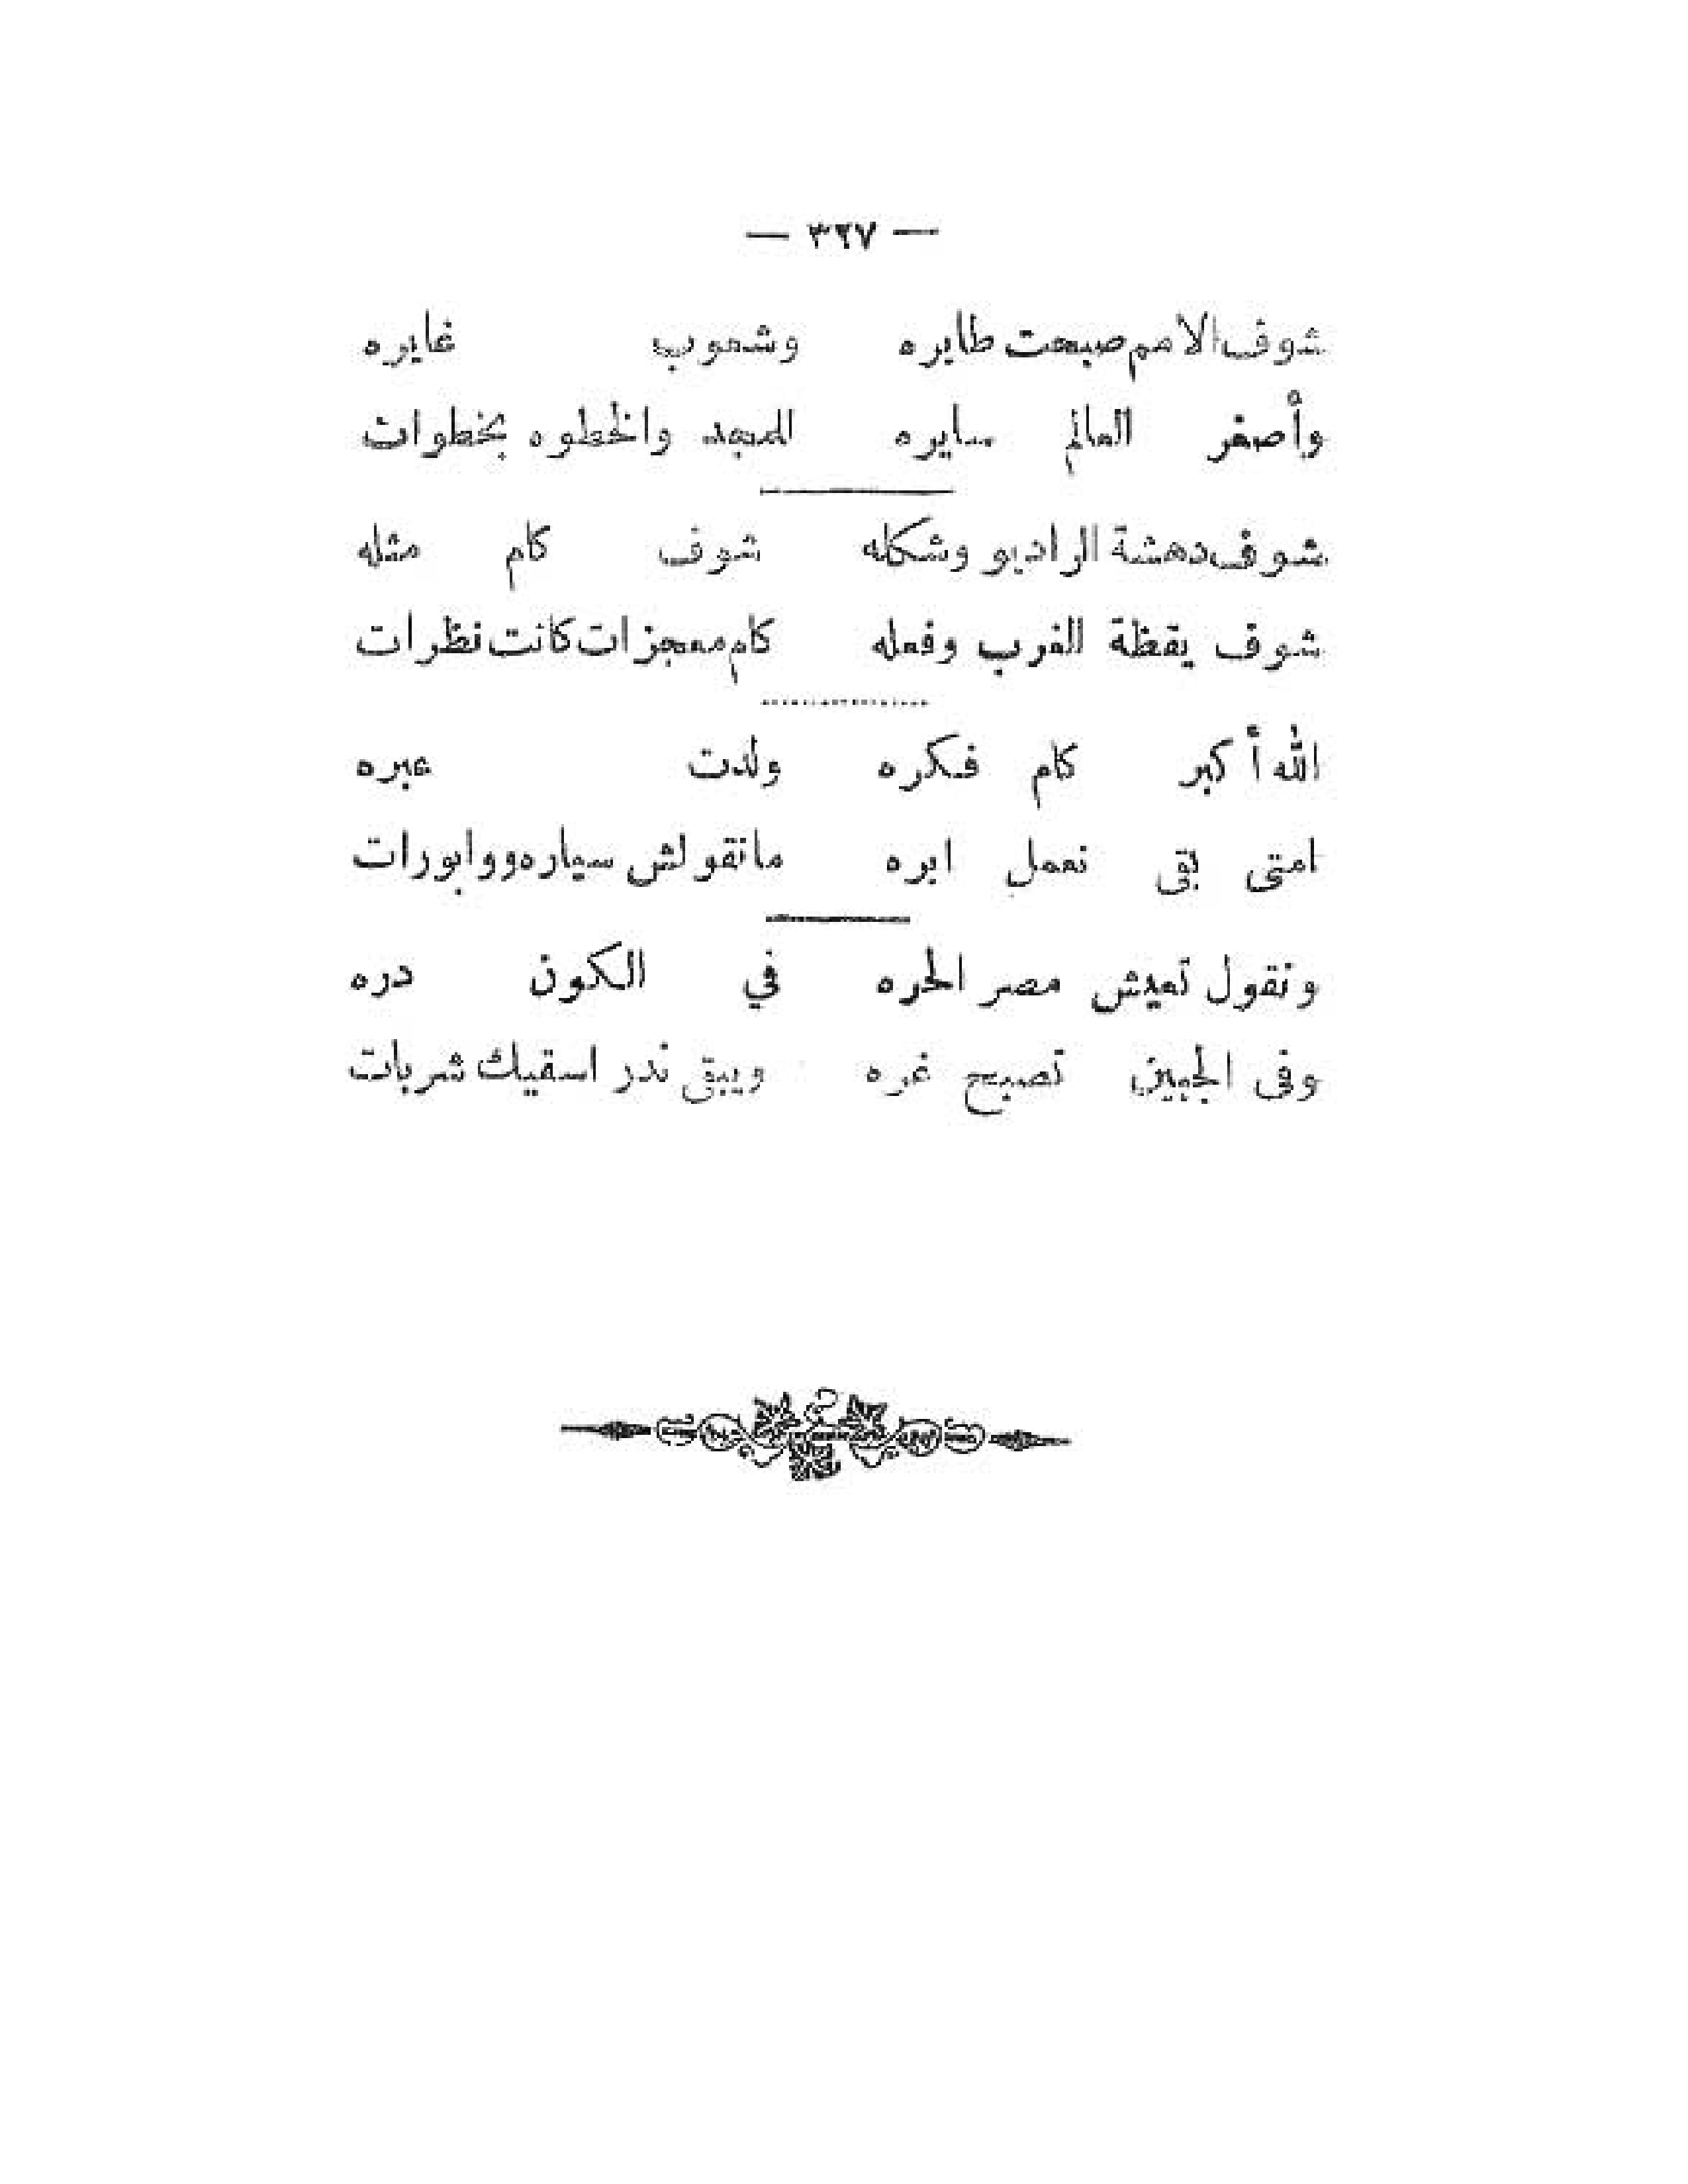 — ٣٢٧ —
شوف الامم صبحت طايره وشعوب غايره
وأصغر العالم سايره للمجد والخطوه بخطوات
شوف دهشة الراديو وشكله شوف كام مثله
شوف يقظة الغرب وفعله كام معجزات كانت نظرات
الله أكبر كام فكره ولدت عبره
امتى بقى نعمل ابره مانقولش سياره ووابورات
ونقول تعيش مصر الحره في الكون دره
وفى الجبين تصبح غره ويبقى ندر اسقيك شربات